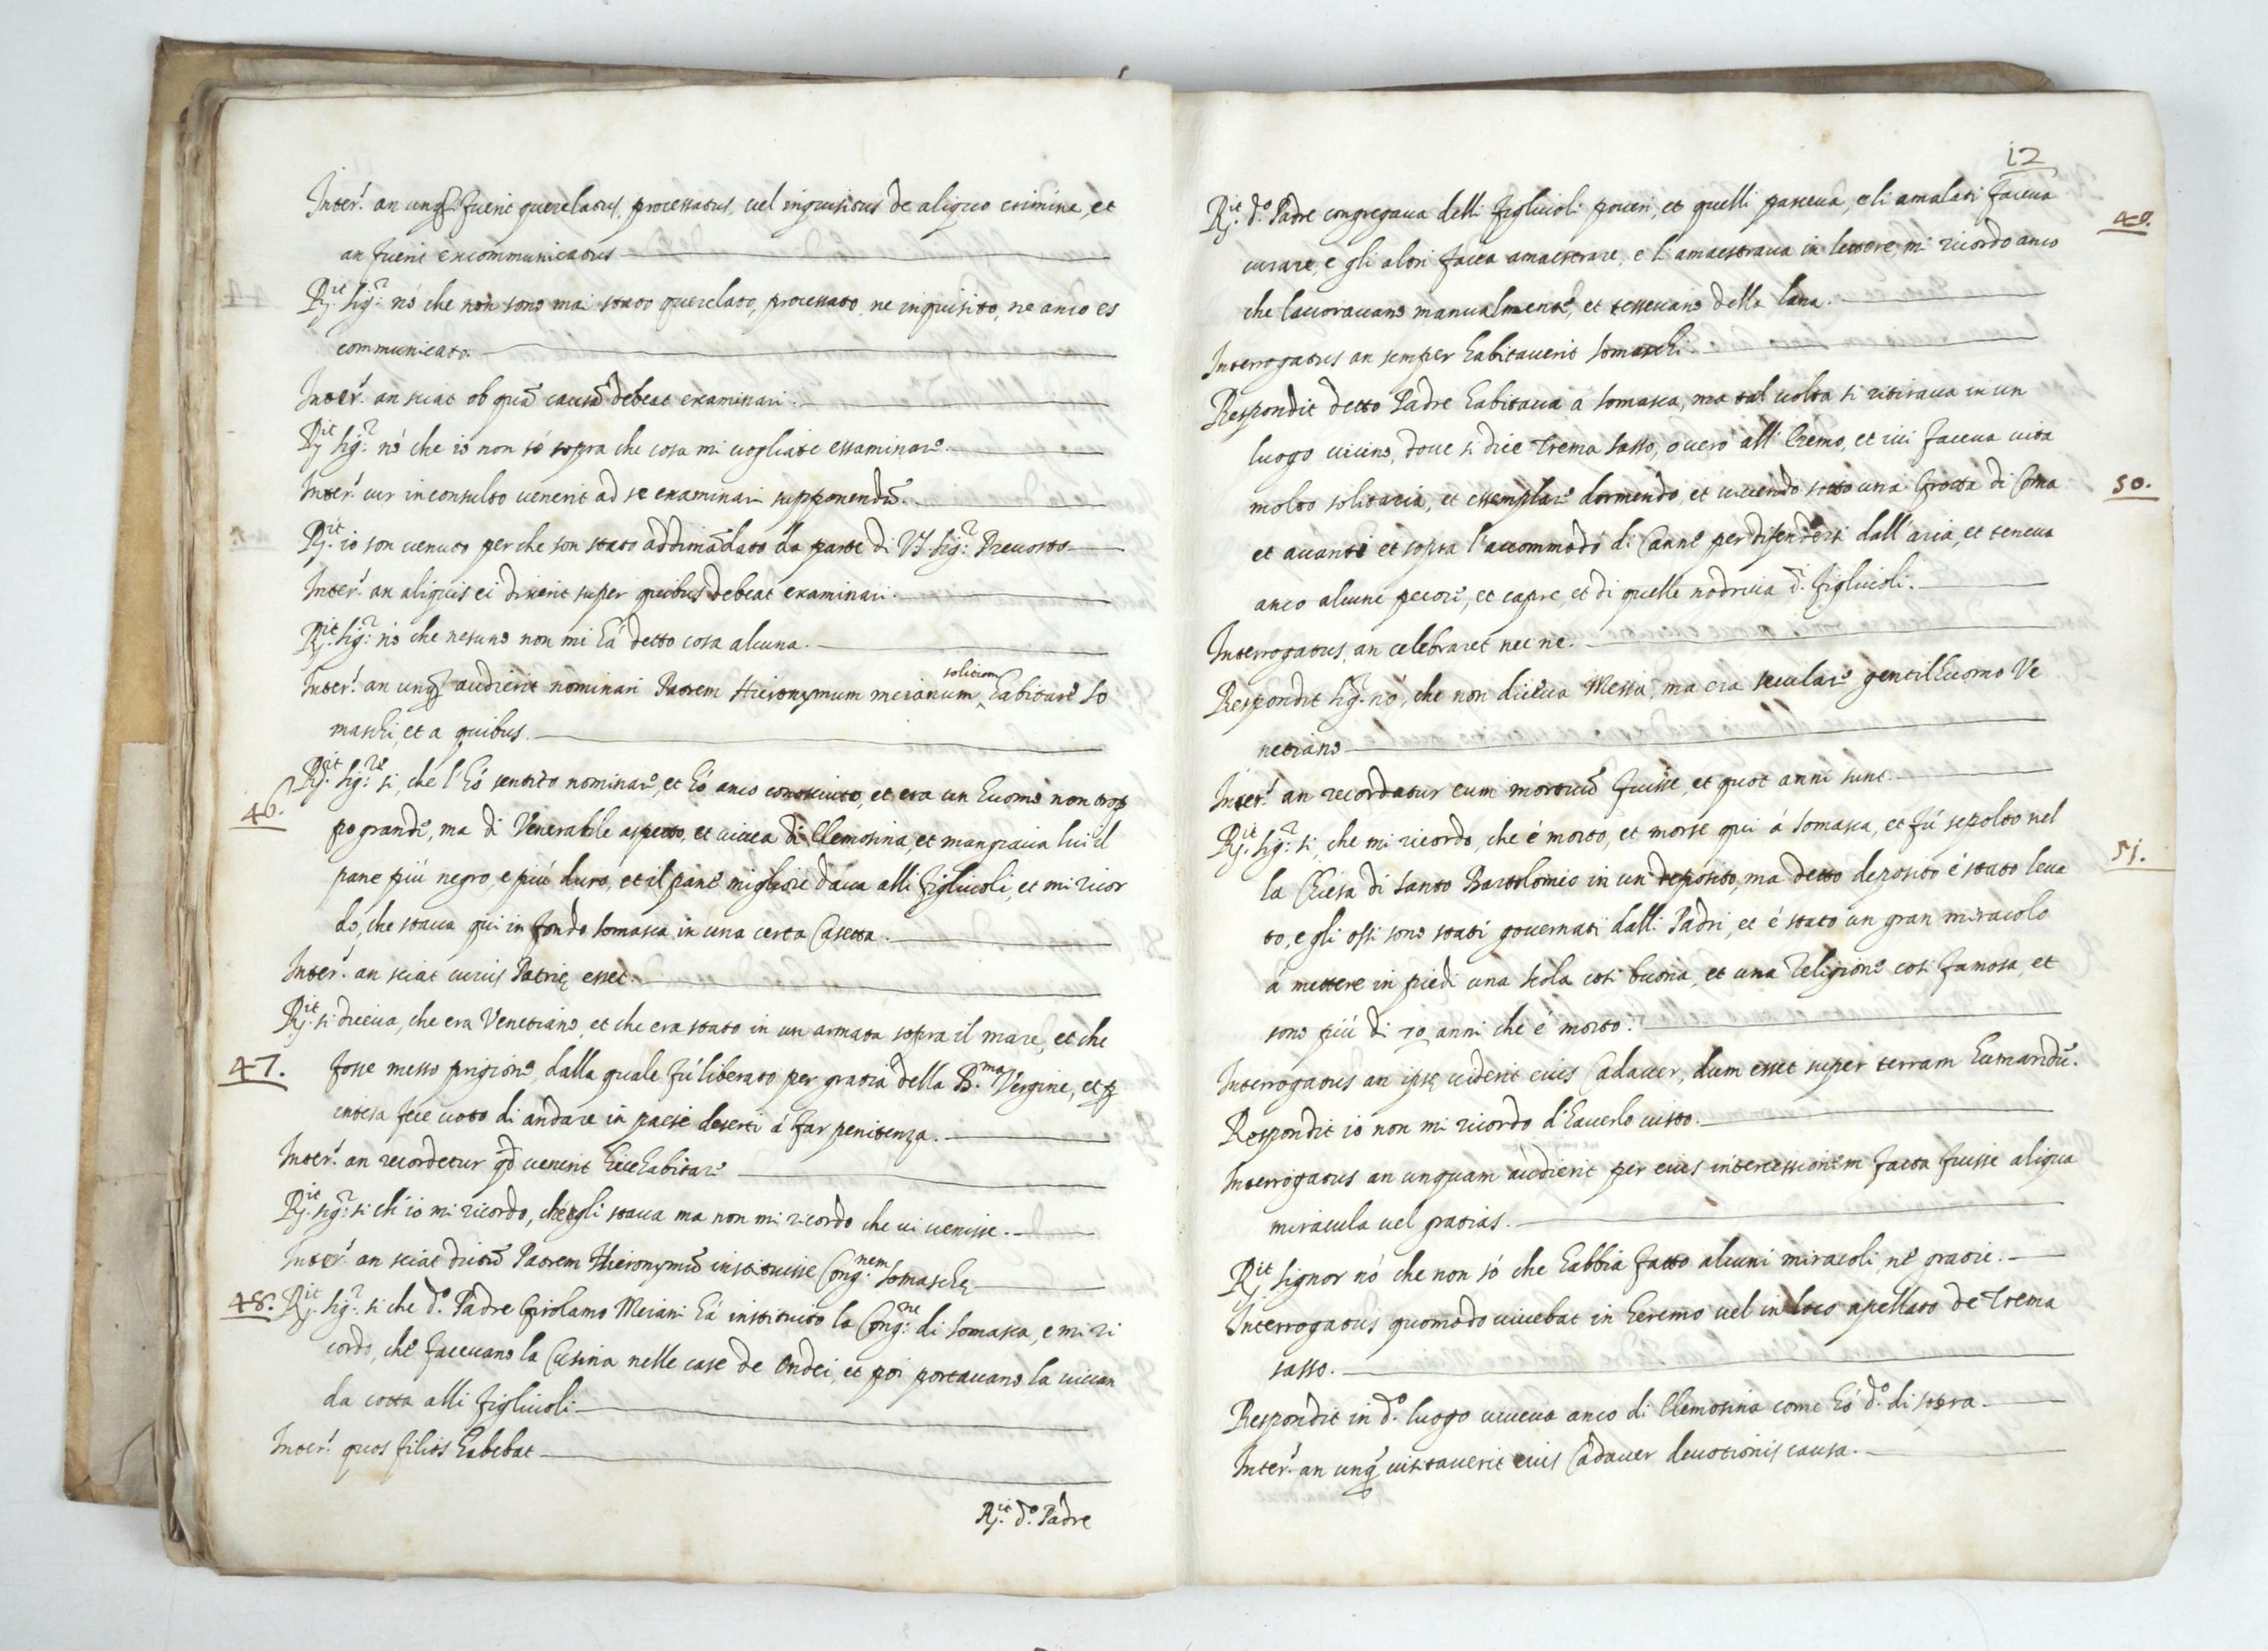 Inter.' an unq. fuerit querelatus, processatus, vel inquisitus de aliquo crimine, et
an fuerit excommunicatus
R.it sig.r nó che non sono mai stato querelato, processato, ne inquisito, ne anco es
communicato.
Inter.' an sciat ob quā causā debeat examinari.
R.it sig.r nó che io non só sopra che cosa mi vogliate essaminare.
Inter.' cur inconsulto venerit ad se examinari supponendū.
R.it io son venuto perche son stato addimādato da parte di VS sig.r Prevosto
Inter.' an aliquis ei dixerit super quibus debeat examinari.
R.it sig.r nó che nesuno non mi há detto cosa alcuna.
Inter.' an unq. audierit nominari Patrem Hieronymum meianum solitum habitare So
maschi, et a quibus.
46. R.it sig.re si, che l'hó sentito nominare, et hó anco conosciuto, et era un huomo non trop
po grande, ma di Venerabile aspetto, et vivea di Elemosina, et mangiava lui il
pane piú negro, e piú duro, et il pane migliore dava alli figliuoli, et mi ricor
do, che stava qui in fondo Somasca in una certa Casetta.
Inter.' an sciat cuius Patrię esset.
R.it si diceva, che era Venetiano, et che era stato in un armata sopra il mare, et che
47. fosse messo prigione, dalla quale fú liberato per gratia della B.ma Vergine, et p
intesa fece voto di andare in paese deserti á far penitenza.
Inter.' an recordetur qd venerit hicc habitare
R.it sig.r si ch'io mi ricordo, che egli stava ma non mi ricordo che vi venisse.
Inter.' an sciat dictū Patrem Hieronymū instituisse Cong.nem Somaschę
48. R.it sig.r si che d.o Padre Girolamo Meiani há instituito la Cong.ne di Somasca, e mi ri
cordo, che facevano la Cusina nelle case de Ondei, et poi portavano la vivan
da cotta alli figliuoli
Inter.' quos filios habebat
R.it d.o Padre
12
R.it d.o Padre congregava delli figliuoli poveri, et quelli pasceva, e li amalati faceva
49.
curare, e gli altri facea amaestrare, e l'amaestrava in lettere, mi ricordo anco
che lavoravano manualmente, et tessevano della lana.
Interrogatus an semper habitaverit Somaschi.
Respondit detto Padre habitava á Somasca, ma tal volta si ritirava in un
luogo vicino, dove si dice Trema sasso, overo all'Eremo, et ivi faceva vita
molto solitaria, et essemplare dormendo, et vivendo sotto una Grotta di Coma
50.
et avanti et sopra l'accommodó di Canne per difendersi dall'aria, et teneva
anco alcune pecore, et capre, et di quelle nodriva d.i figliuoli.
Interrogatus, an celebraret nec ne.
Respondit sig.r nó, che non diceva Messa, ma era seculare gentilhuomo Ve
netiano
Inter.' an recordatur eum mortuū fuisse, et quot anni sunt.
R.it sig.r si, che mi ricordo, che é morto, et morse qui á Somasca, et fú sepolto nel
51.
la Chiesa di Santo Bartolomeo in un deposito, ma detto deposito é stato leva
to, e gli ossi sono stati governati dalli Padri, et é stato un gran miracolo
á mettere in piedi una scola cosi buona, et una religione cosi famosa, et
sono piú di 70 anni che é morto.
Interrogatus an ipse viderit eius Cadaver, dum esset super terram humandū.
Respondit io non mi ricordo d'haverlo visto.
Interrogatus an unquam audierit per eius intercessionem facta fuisse aliqua
miracula vel gratias.
R.it signor nó che non só che habbia fatto alcuni miracoli, né gratie.
Interrogatus quomodo vivebat in heremo vel in loco apellato de Trema
sasso.
Respondit in d.o luogo viveva anco di Elemosina come hó d.o di sopra.
Inter.' an unq. visitaverit eius Cadaver devotionis causa.